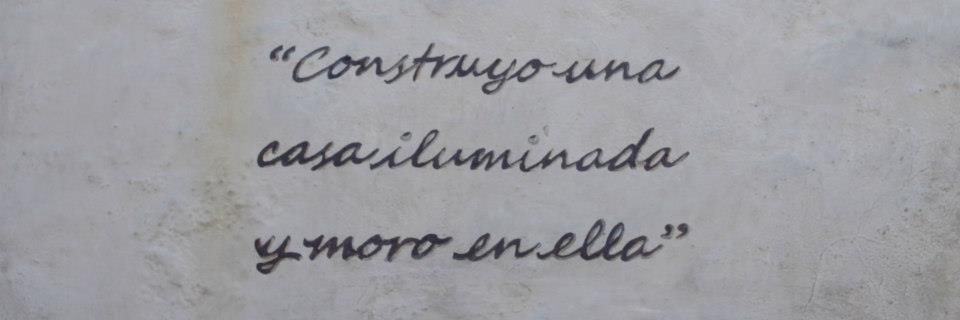 “Construyo una
casa iluminada
y moro en ella”